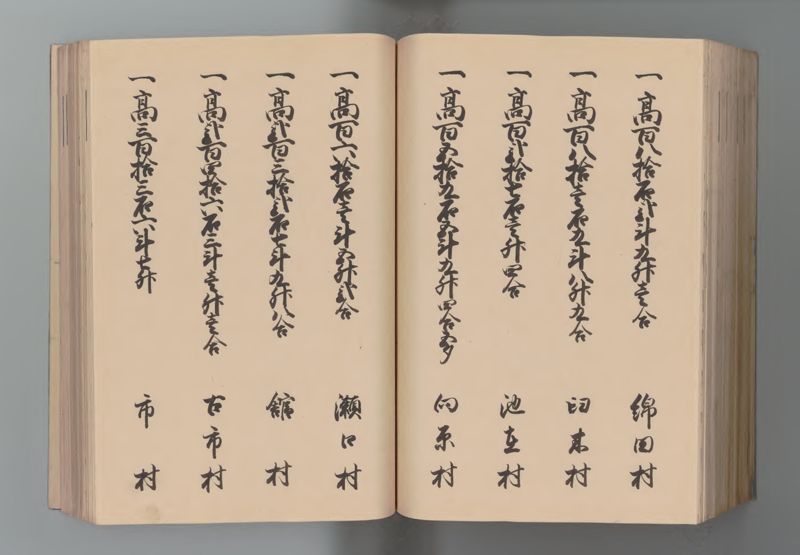 一高百八拾石弐斗九升壱合 綿田村
一高百八拾壱石九斗八升九合 臼木村
一高百弐拾七石壱升四合 池在村
一高百五拾九石五斗九升四合五夕 向原村
一高百六拾石壱斗五升弐合 瀬口村
一高弐百三拾弐石七斗九升八合 舘村
一高弐百四拾六石三斗壱升壱合 古市村
一高三百拾三石六斗七升 市村